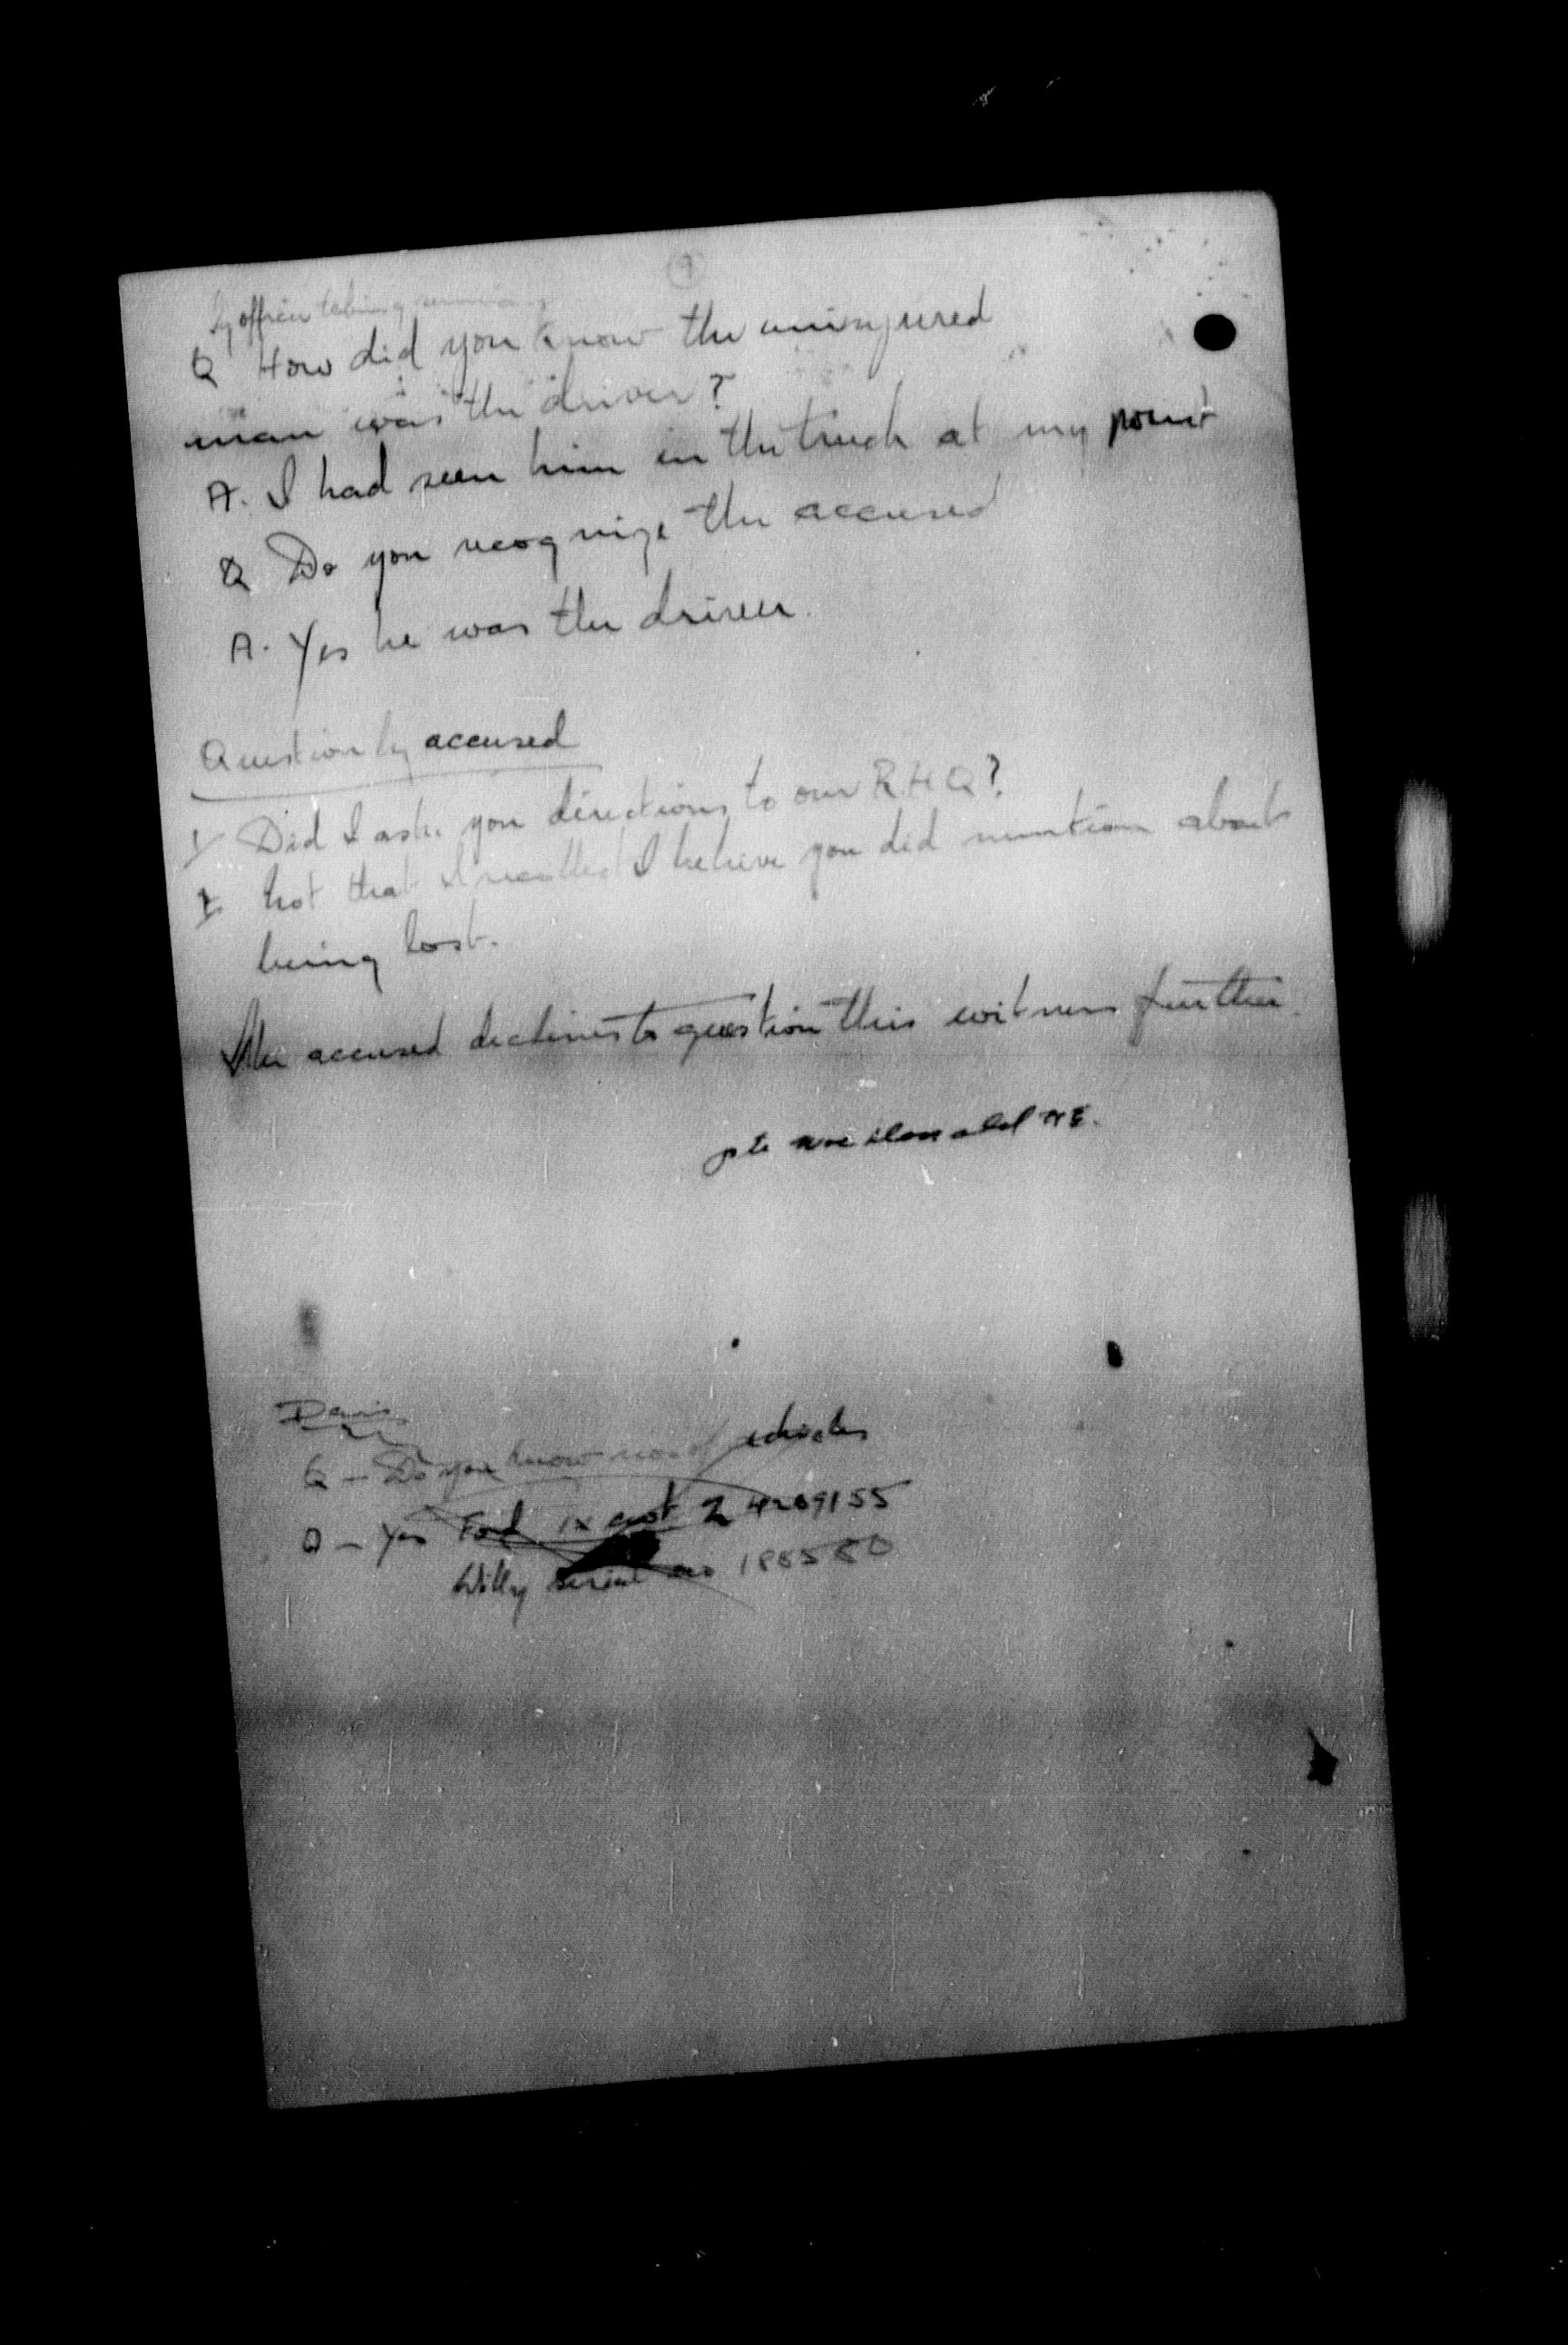 9
by officer taking summary
Q How did you know the uninjured
man was the driver?
A. I had seen him in the truck at my point
Q Do you recognize the accused
A. Yes he was the driver.
Question by accused
Did I ask you directions to our R.H.Q?
Not that I recalled I believe you did mention about
being lost.
The accused declines to question this witness further.
pte MacDonald
Davis
Q - Do you know no. of vehicles
A - Yes Ford 4289155
Willy serial no 188580